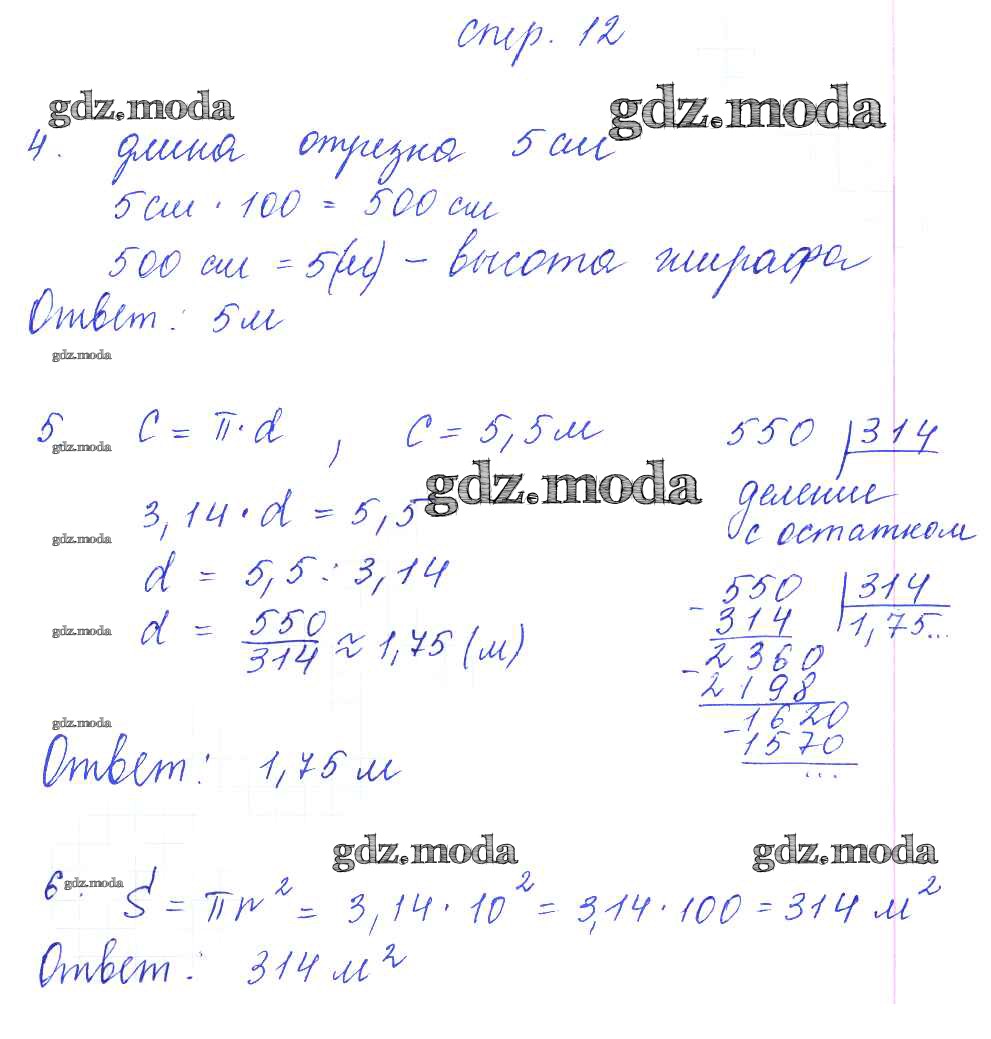 стр. 12
gdz.moda
gdz.moda
4. длина отрезка 5 см
5 см · 100 = 500 см
500 см = 5 (м) – высота жирафа
Ответ: 5 м
gdz.moda
5 C = π · d , C = 5,5 м
gdz.moda
gdz.moda
3,14 · d = 5,5
gdz.moda
d = 5,5 : 3,14
d = 550/314 ≈ 1,75 (м)
gdz.moda
gdz.moda
Ответ: 1,75 м
550 | 314
деление
с остатком
- 550 | 314
314 | 1,75...
- 2360
2198
- 1620
1570
...
gdz.moda
gdz.moda
6. S = πr² = 3,14 · 10² = 3,14 · 100 = 314 м²
gdz.moda
Ответ: 314 м²